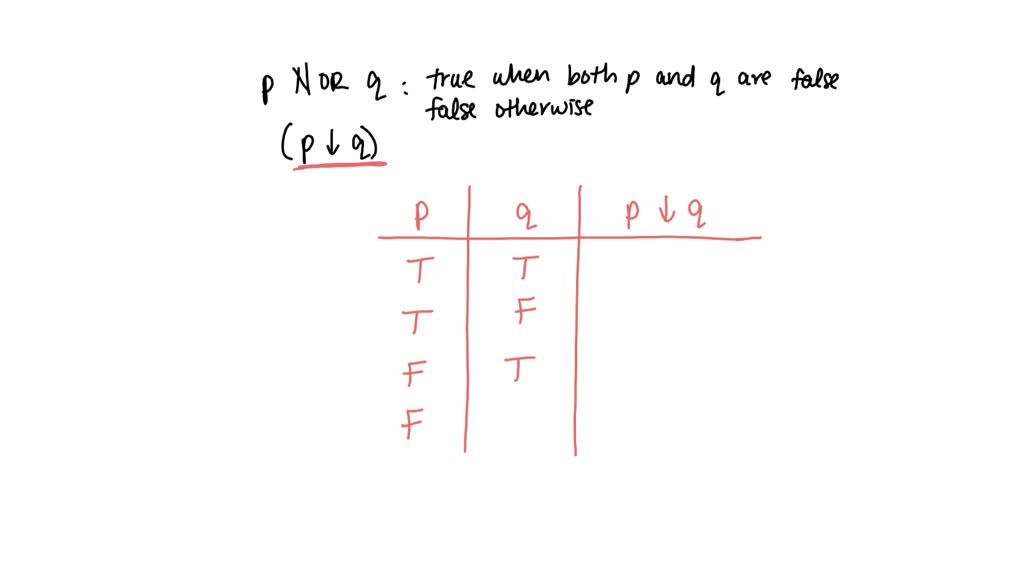 p NOR q : true when both p and q are false
false otherwise
(p ↓ q)
p q p ↓ q
T T
T F
F T
F